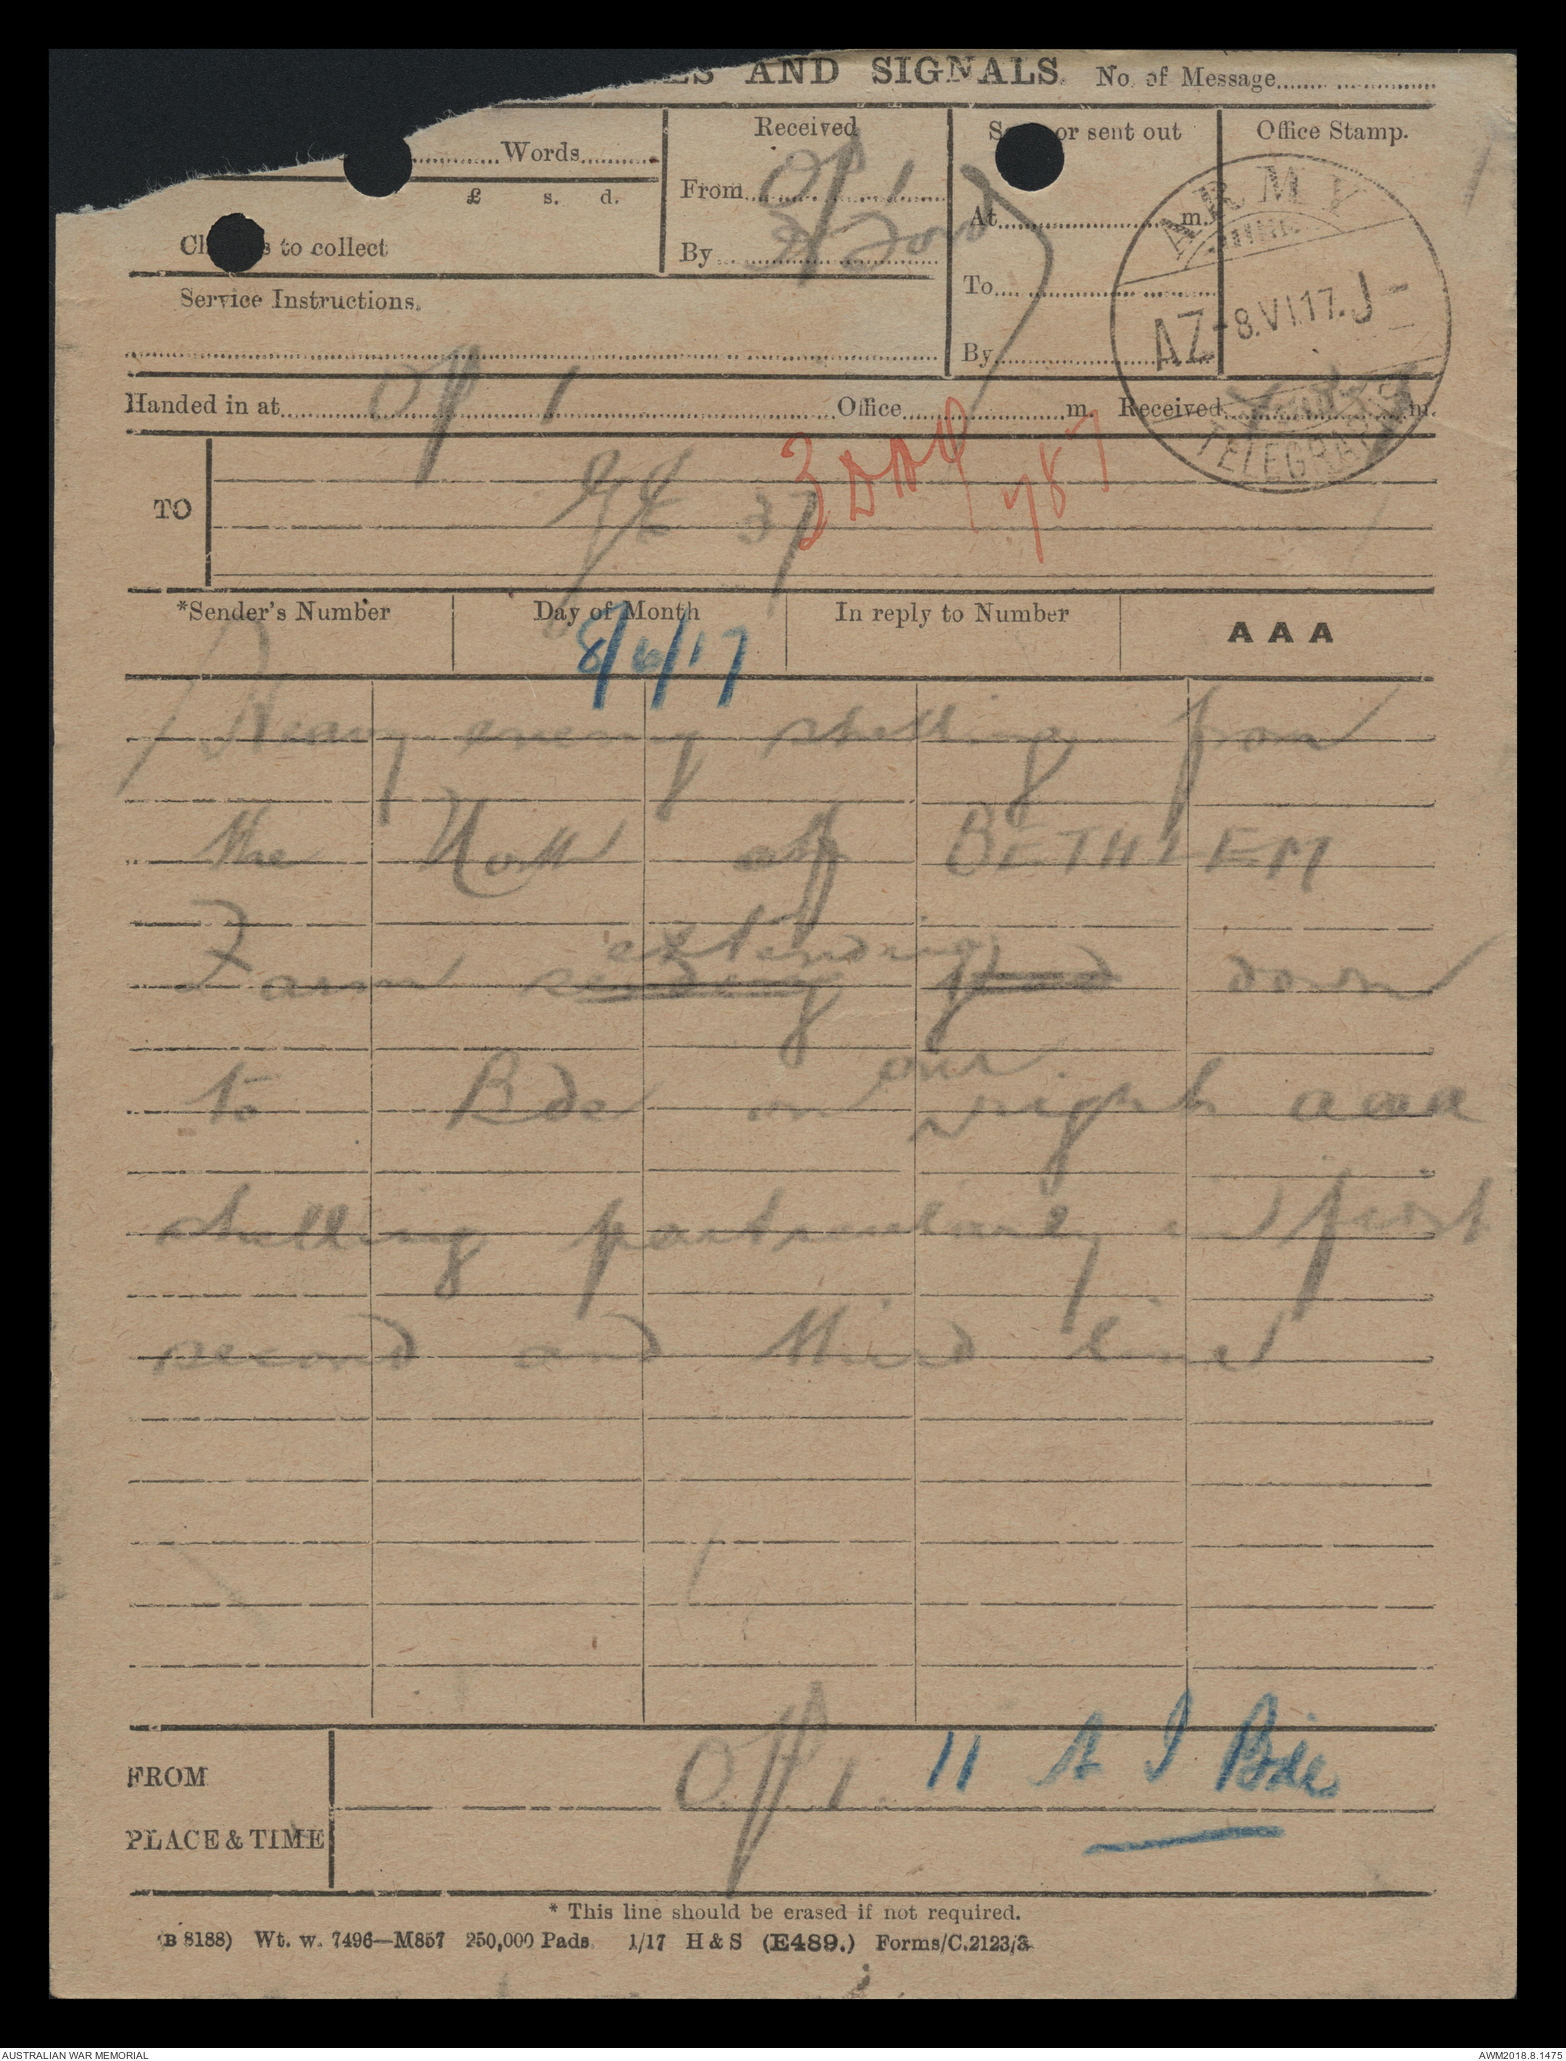 ES AND SIGNALS. No. of Message
Words
£ s. d.
to collect
Service Instructions.
Received
From Off 1
By
or sent out
At m.
To
By
Office Stamp.
ARMY
AZ -8.VI.17. J
TELEGRAPHS
Handed in at Off 1 Office m. Received m.
TO
GE 37
*Sender's Number Day of Month In reply to Number AAA
8/6/17
Heavy enemy shelling from
the North off BETHLEM
Farm extending down
to Bde on our right aaa
shelling particularly in first
second and third lines
FROM Off 1. 11 A I Bde
PLACE & TIME
* This line should be erased if not required.
(B 8188) Wt. w. 7496—M857 250,000 Pads 1/17 H & S (E489.) Forms/C.2123/3.
AUSTRALIAN WAR MEMORIAL AWM2018.8.1475